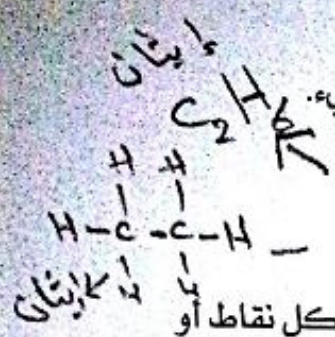 إيثان
C₂H₆
H H
H-C-C-H
H H
إيثان
كل نقاط أو